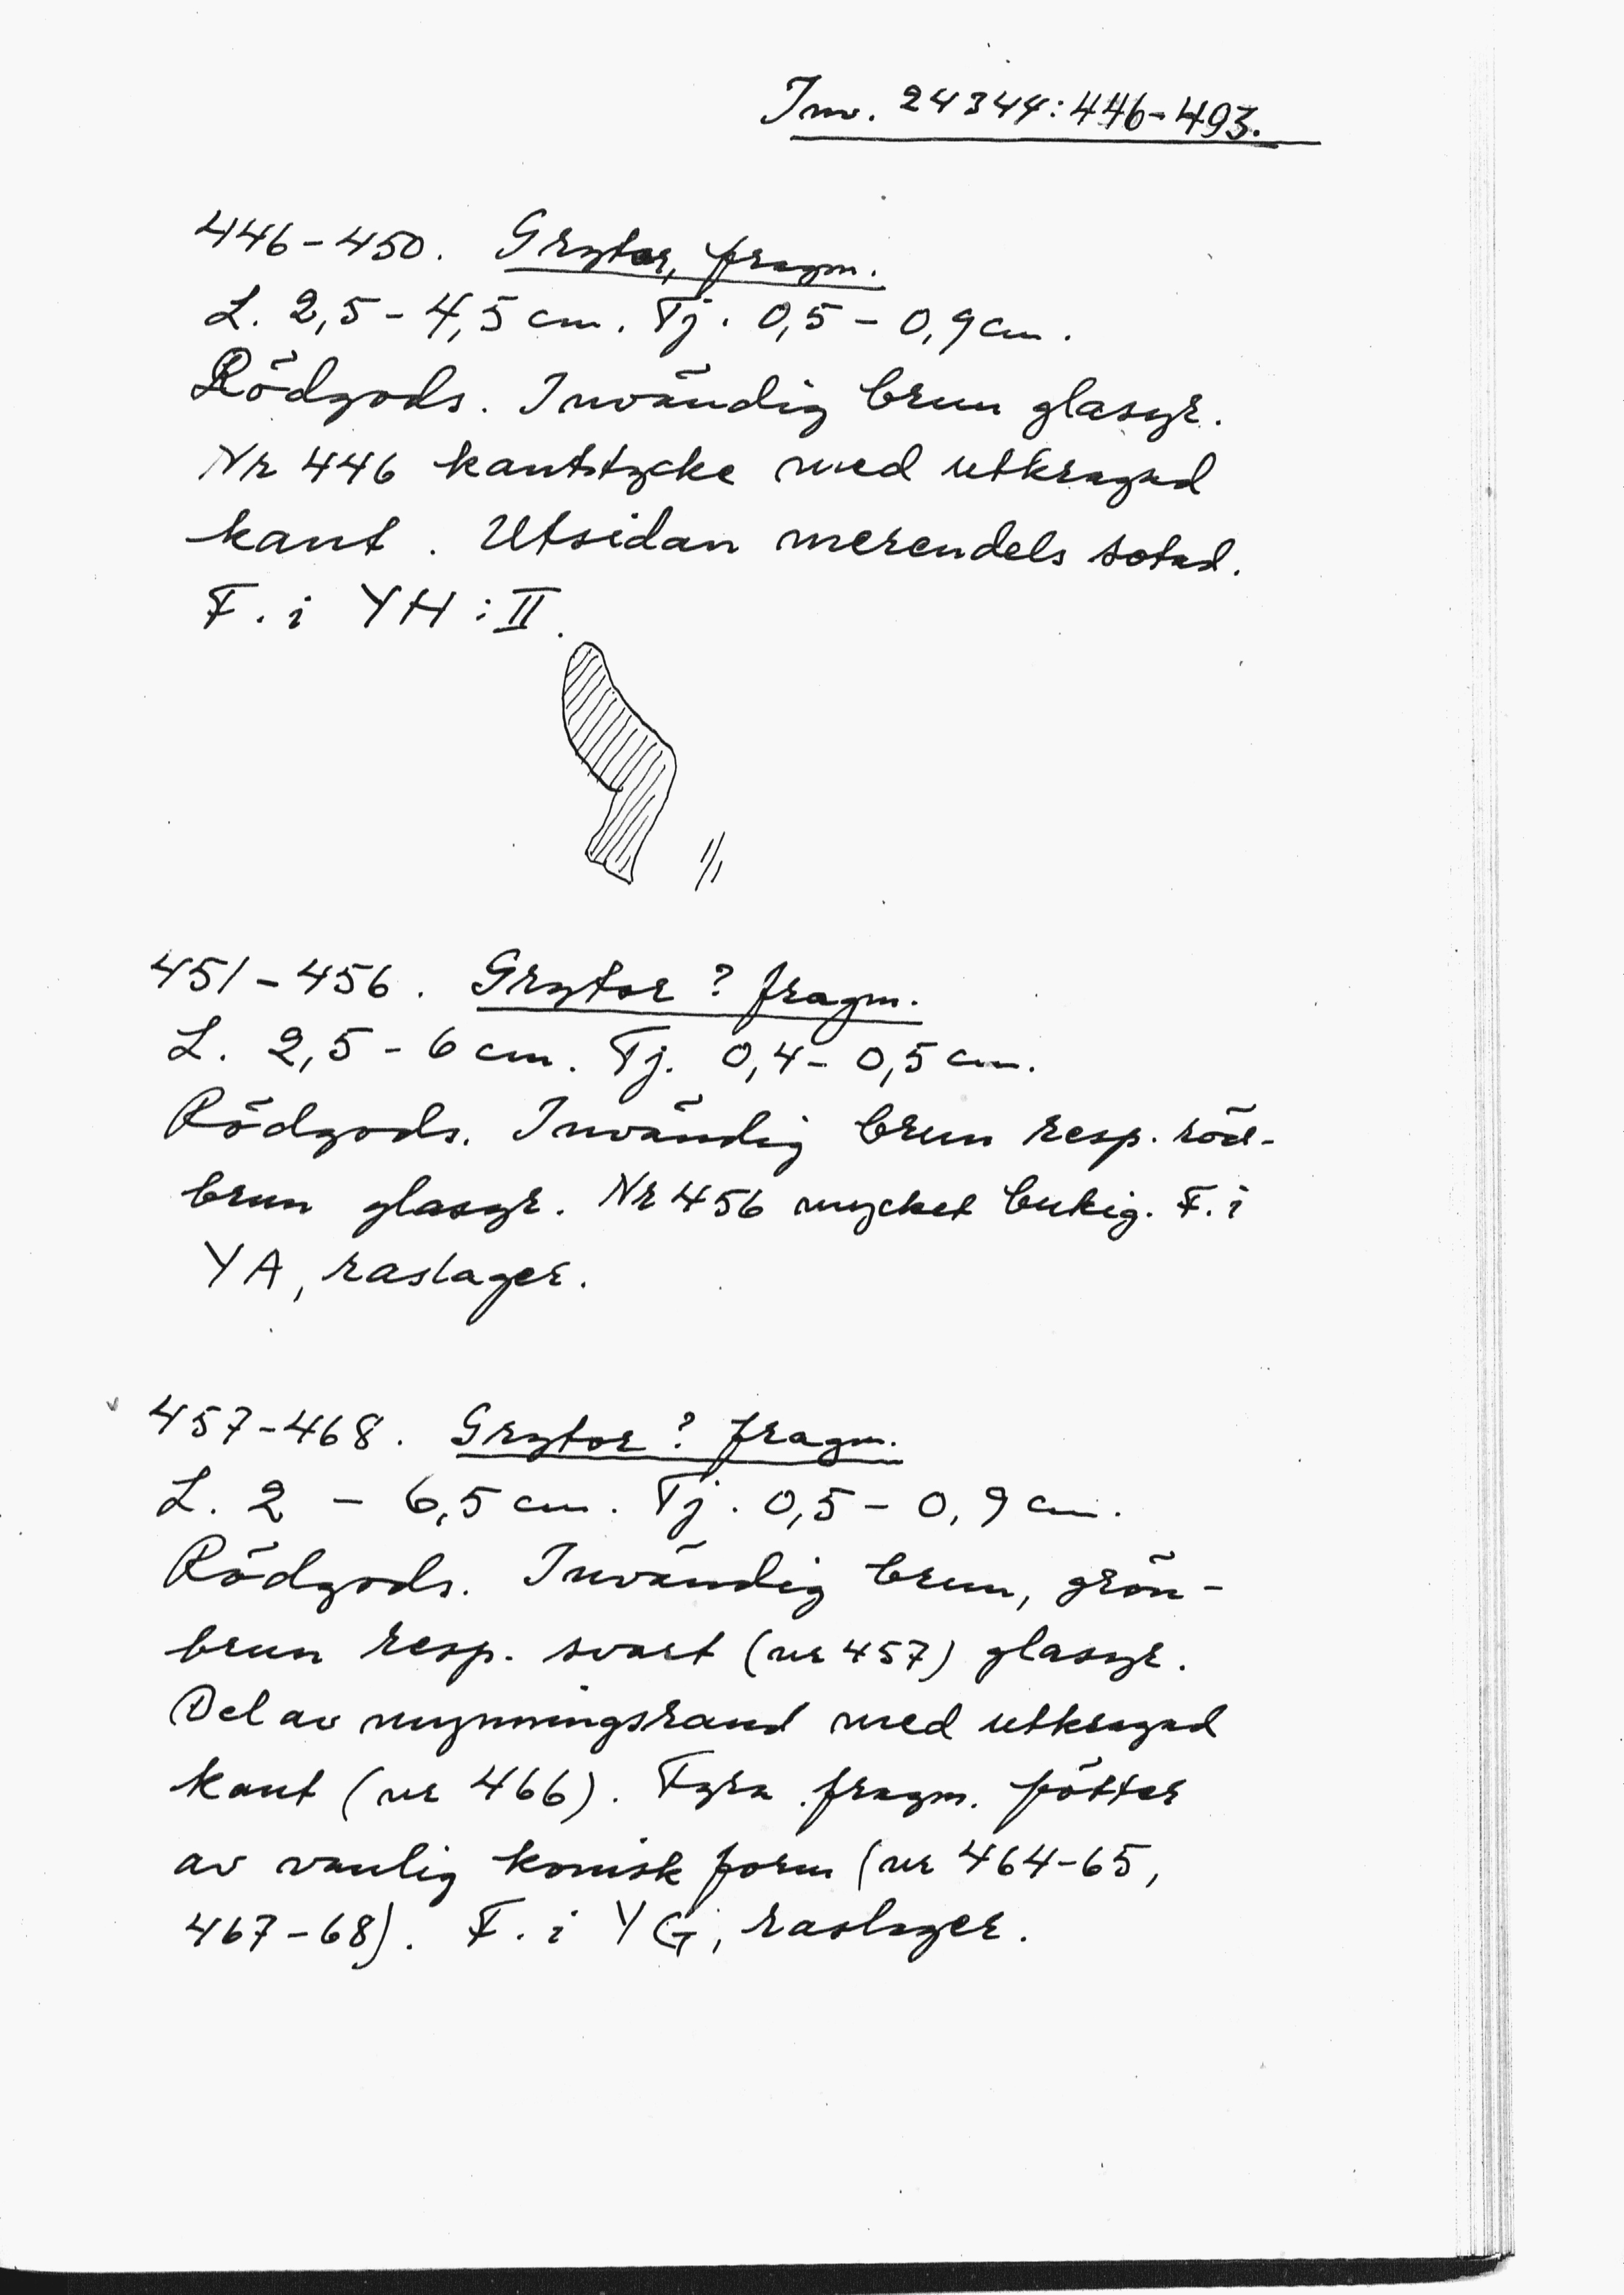 Inv. 24344:446-493.
446-450. Grytor, fragm.
L. 2,5-4,5 cm. Tj. 0,5-0,9 cm.
Rödgods. Invändig brun glasyr.
Nr 446 kantstycke med utkragad
kant. Utsidan merendels sotad.
F. i YH:II.
1/1
451-456. Grytor? fragm.
L. 2,5-6 cm. Tj. 0,4-0,5 cm.
Rödgods. Invändig brun resp. röd-
brun glasyr. Nr 456 mycket bukig. F. i
YA, raslager.
457-468. Grytor? fragm.
L. 2 - 6,5 cm. Tj. 0,5-0,9 cm.
Rödgods. Invändig brun, grön-
brun resp. svart (nr 457) glasyr.
Del av mynningsrand med utkragad
kant (nr 466). Fyra fragm. fötter
av vanlig konisk form (nr 464-65,
467-68). F. i YG, raslager.